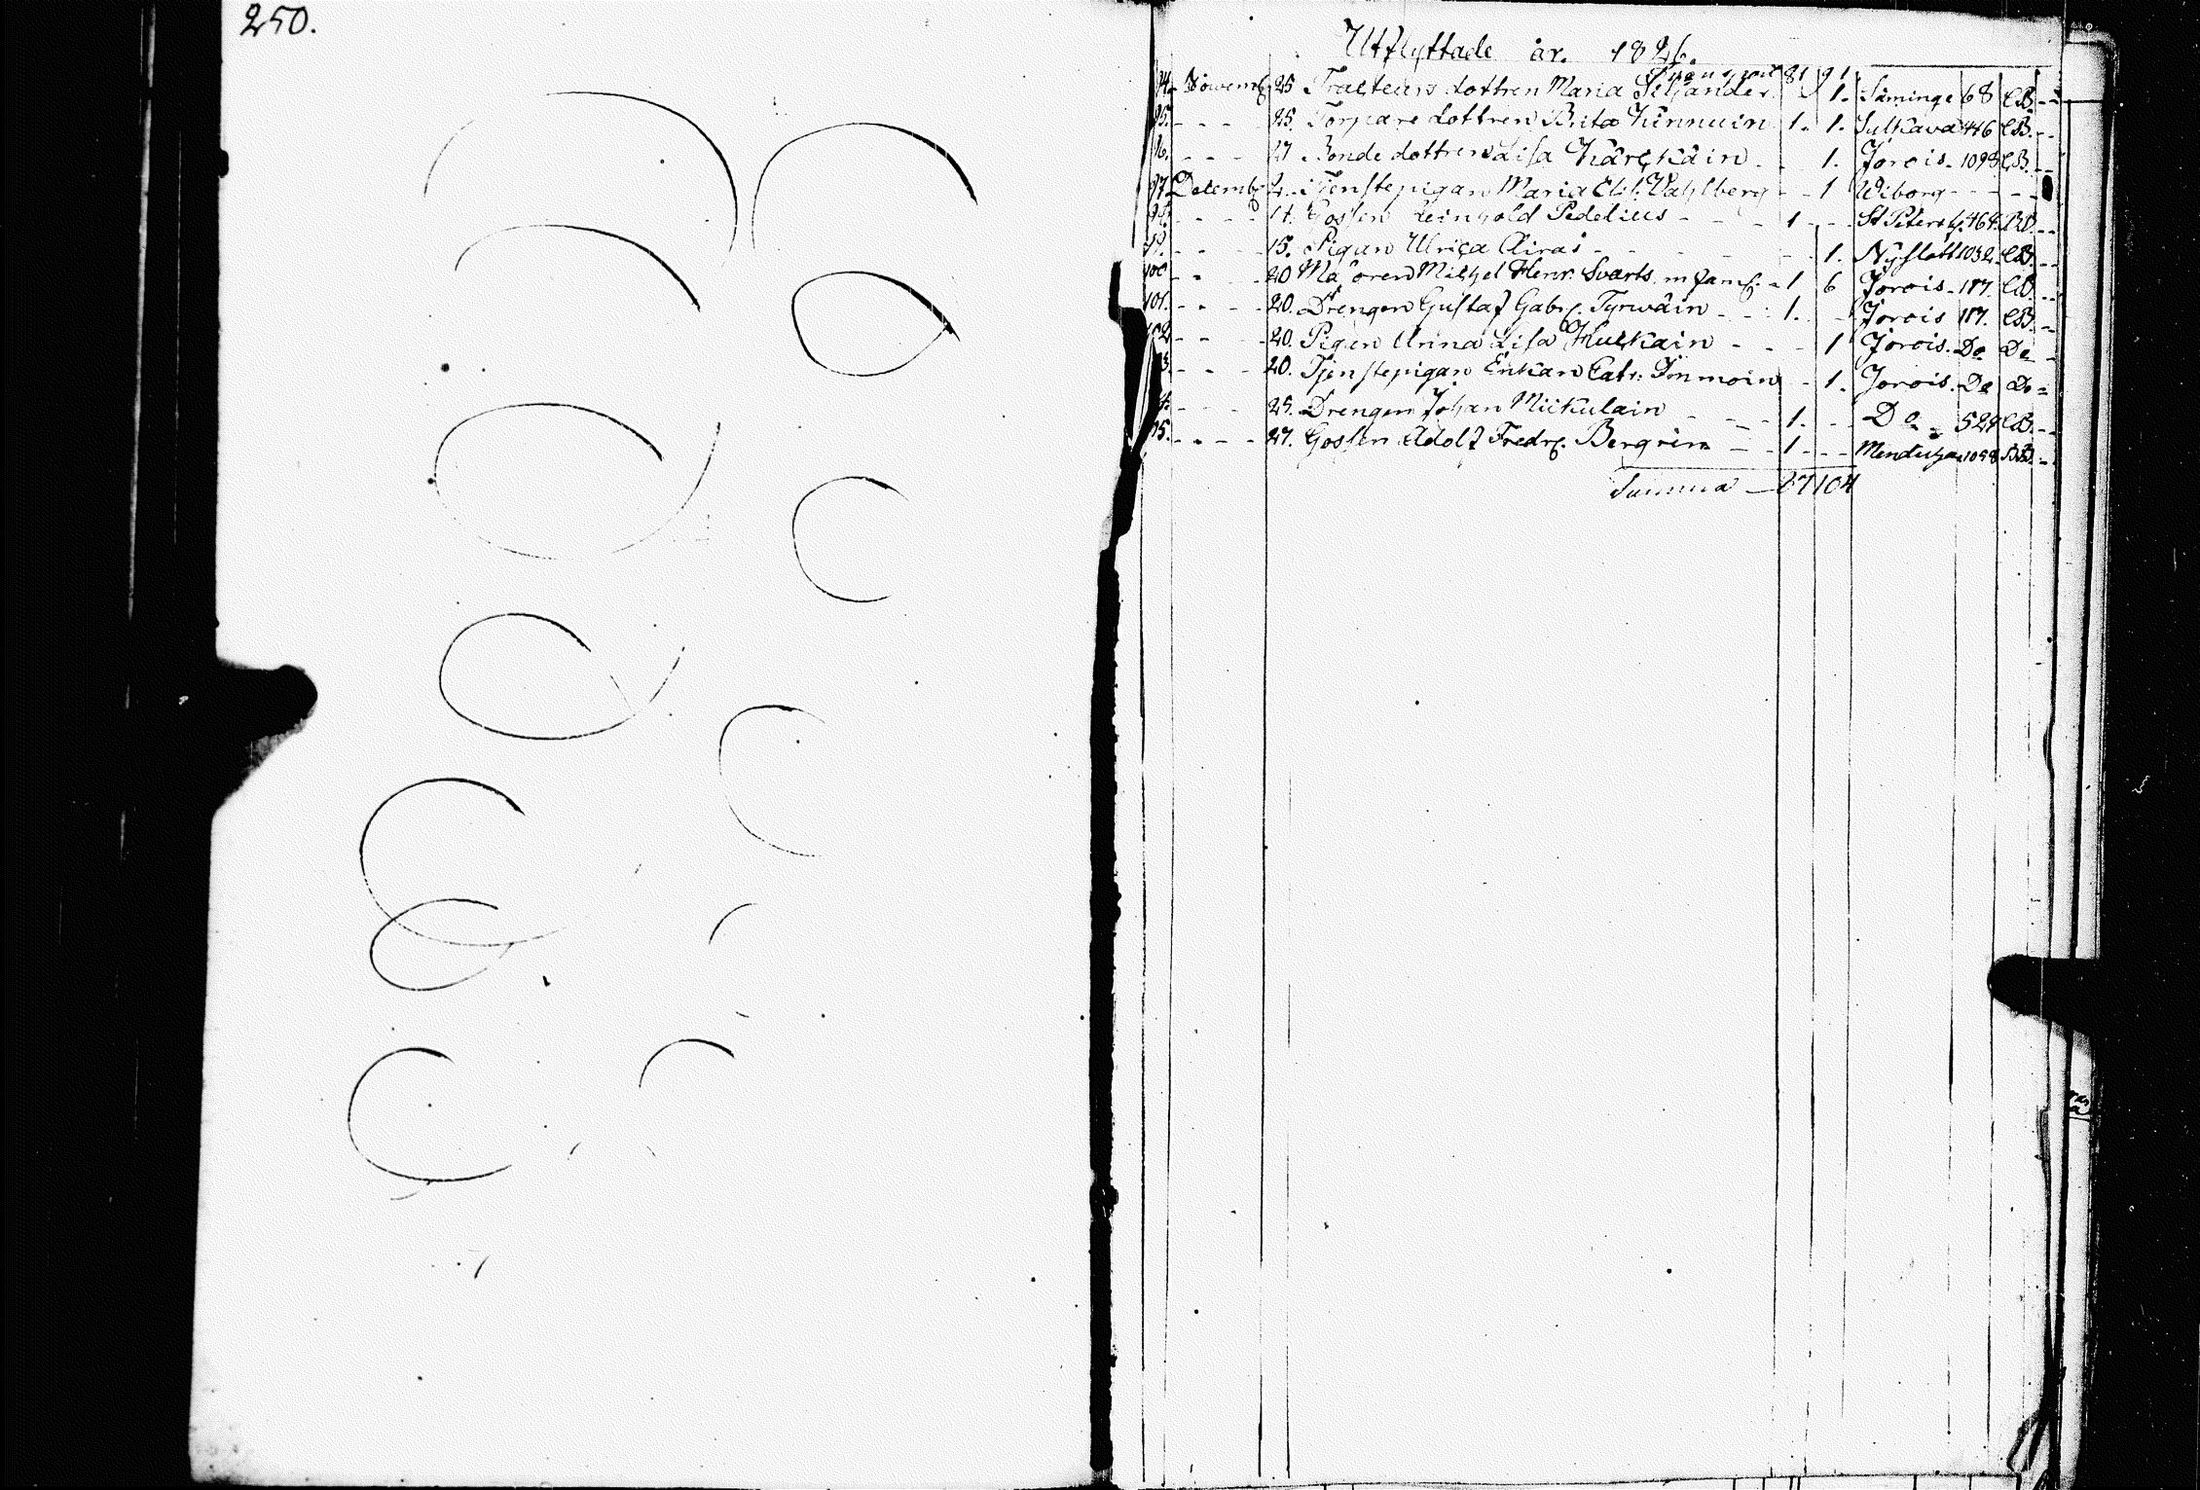 250.
Utflyttade år. 1826.
Transport 81 91
94. Novemb. 25 Tracteurs dottren Maria Siljander - 1. Säminge 68 CB. -
95. - - - 25. Torpare dottren Brita 1. 1. Sulkava 446 CB. - -
96. - - - 27 Bonde dottren Lisa Kärckäin - - 1. Jorois. 1098 CB. - -
97. Decemb. 4. Tjenstepigan Maria Elis. Vahlberg - - 1 Wiborg - - - -
98. - - - 14. Gossen Reinhold Pedelius - - - 1 - - St Petersb. 464. BB. - -
99. - - - 15. Pigan Ulrica Airas - - - 1. Nyslott 1032. CB. - -
100. - - - 20 Majoren Michel Henr. Svarts. m famil. - 1 6 Jorois. 187. CB. - -
101. - - - 20. Drengen Gustaf Gabr. Tyrwäin - - - 1. - Jorois 187. CB. - -
102. - - - 20. Pigan Anna Lisa Hulkäin - - - 1 Jorois. Do Do -
3. - - - 20. Tjenstepigan Enkan Catr. Immoin - 1. Jorois. Do Do -
4. - - - 25. Drengen Johan Mickulain - - - 1. - - Do - 529 CB. - -
5. - - - 27. Gossen Adolf Fredr. Bergren - - 1 - - - 1098 BB. -
Summa - 87 104